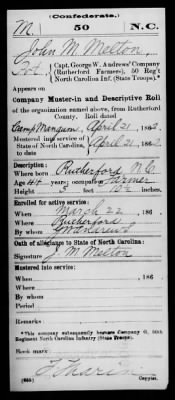 (Confederate.)
M 50 N.C.
John M. Melton
Pvt, Capt. George W. Andrews' Company
(Rutherford Farmers), 50 Reg't
North Carolina Inf. (State Troops).*
Appears on
Company Muster-in and Descriptive Roll
of the organization named above, from Rutherford
County. Roll dated
Camp Mangum, April 21, 1862.
Mustered into service of
State of North Carolina, April 21, 1862
Description:
Where born Rutherford N.C.
Age 44 years; occupation Farmer
Height 5 feet 10½ inches.
Enrolled for active service:
When March 22, 186
Where Rutherford
By whom G W Andrews
Oath of allegiance to State of North Carolina:
Signature J. M. Melton
Mustered into service:
When , 186
Where
By whom
Period
Remarks:
*This company subsequently became Company G, 50th
Regiment North Carolina Infantry (State Troops).
Book mark:
(655) Copyist.